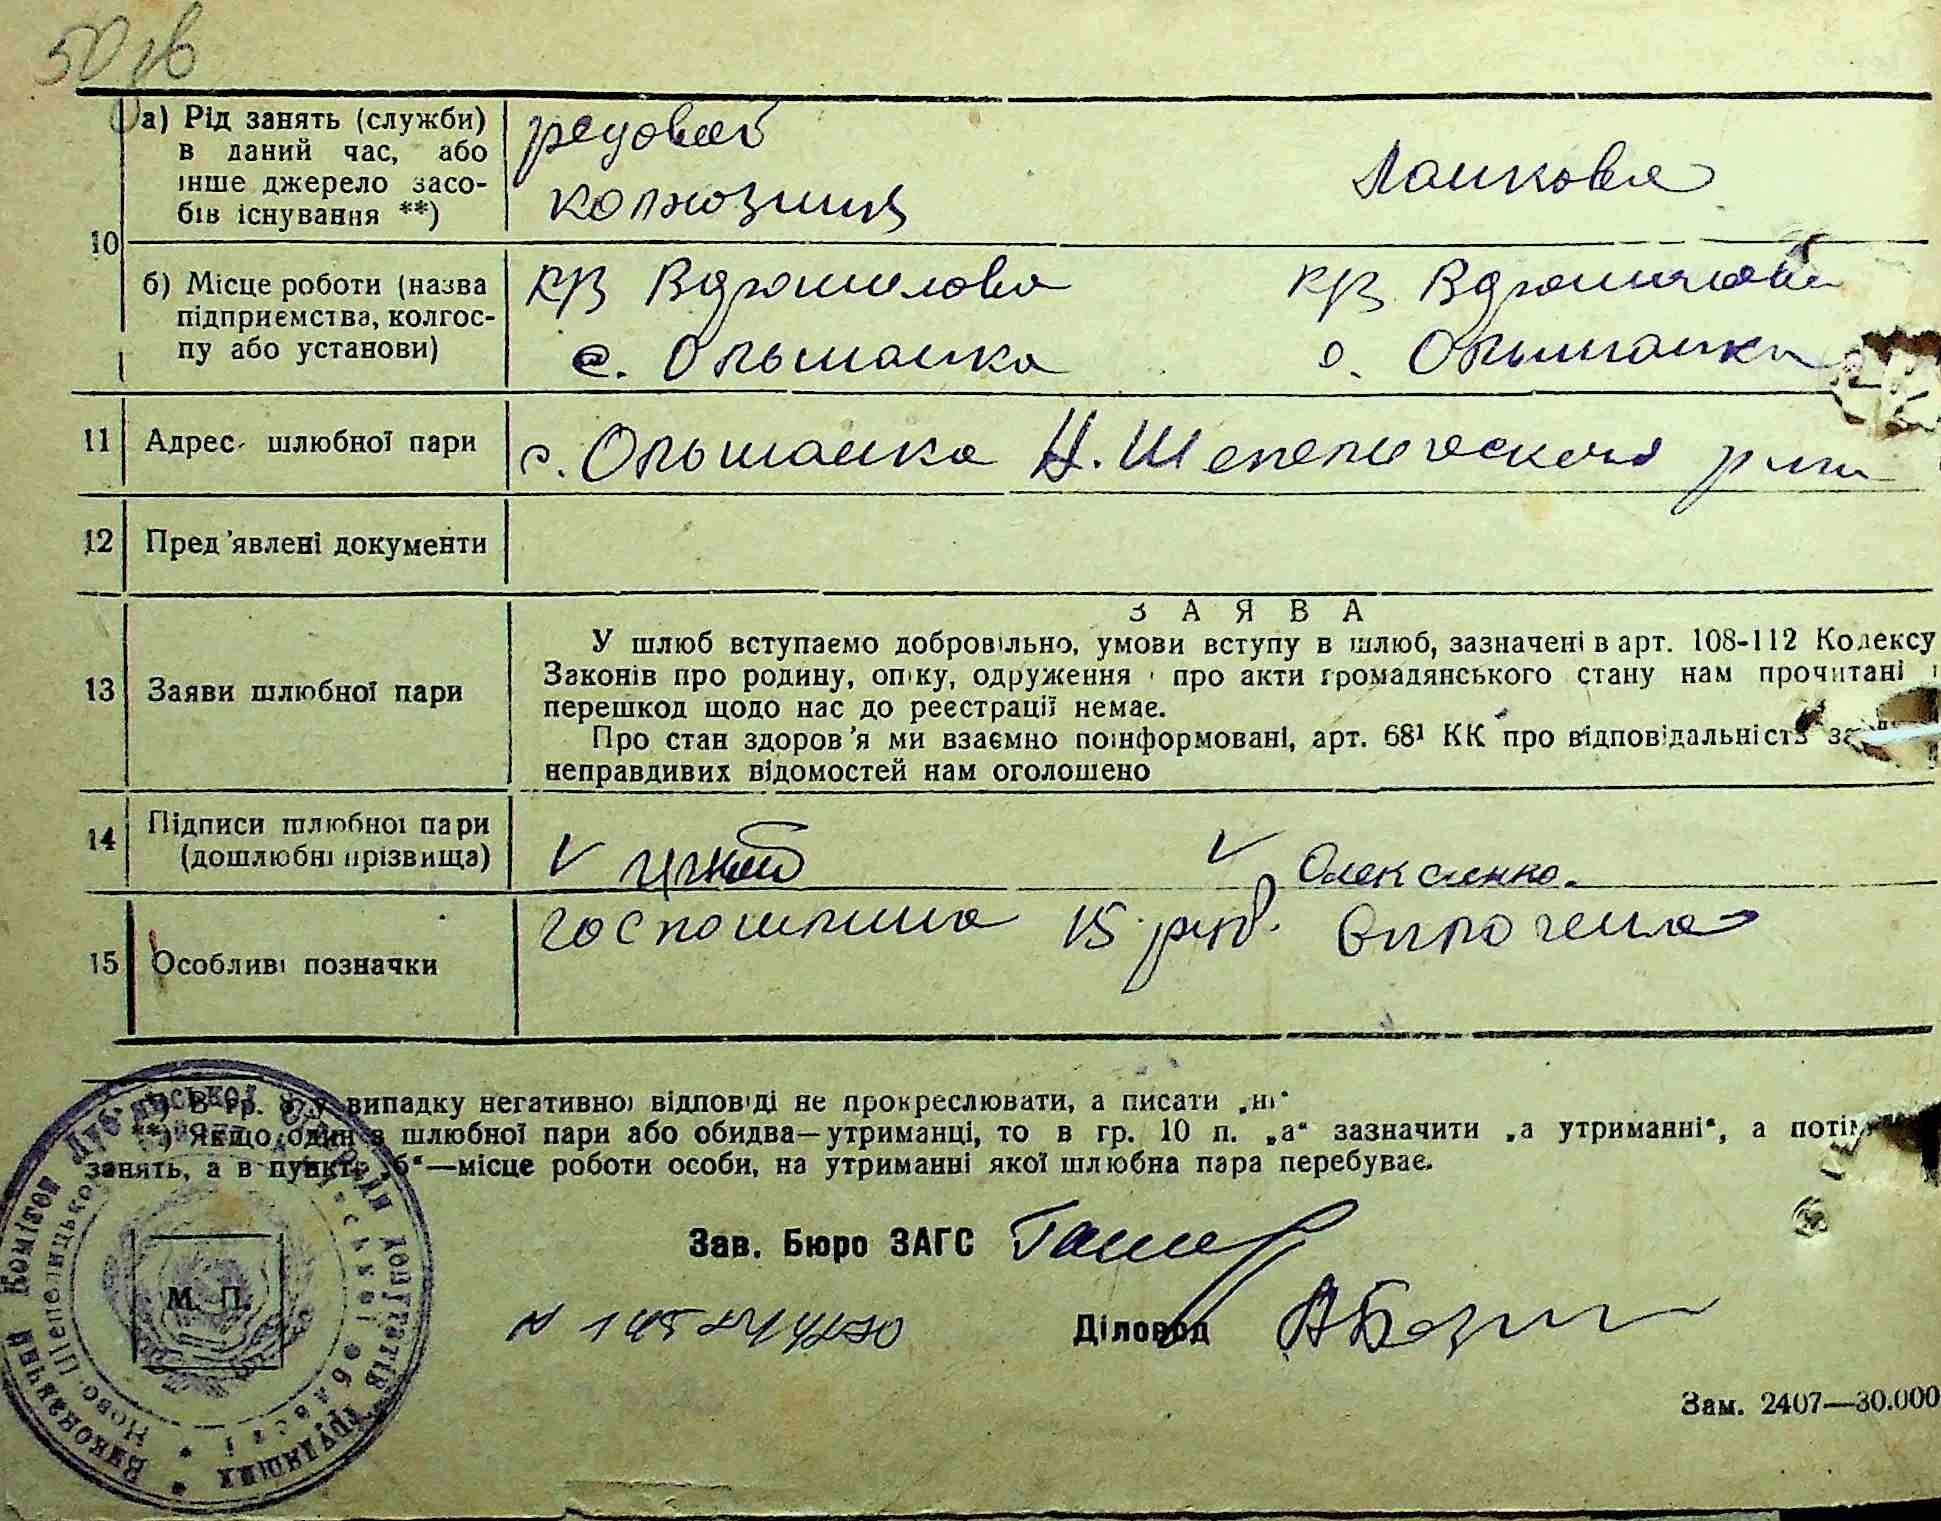 50 зв
10
а) Рід занять (служби)
в даний час, або
інше джерело засо-
бів існування **)
редовой
колхозник
Ланковая
б) Місце роботи (назва
підприємства, колгос-
пу або установи)
к/з Ворошилова
с. Ольшанка
к/з Ворошилова
с. Ольшанка
11 Адрес шлюбної пари
с. Ольшанка Н. Шепелического р-на
12 Пред'явлені документи
13 Заяви шлюбної пари
ЗАЯВА
У шлюб вступаємо добровільно, умови вступу в шлюб, зазначені в арт. 108-112 Кодексу
Законів про родину, опіку, одруження і про акти громадянського стану нам прочитані і
перешкод щодо нас до реєстрації немає.
Про стан здоров'я ми взаємно поінформовані, арт. 68¹ КК про відповідальність за
неправдивих відомостей нам оголошено
14 Підписи шлюбної пари
(дошлюбні прізвища)
Олексієнко.
15 Особливі позначки
госпошлина 15 руб. оплочена
*) В гр. 8, у випадку негативної відповіді не прокреслювати, а писати „ні“
**) Якщо один з шлюбної пари або обидва—утриманці, то в гр. 10 п. „а“ зазначити „а утриманні“, а потім
занять, а в пункті „б“—місце роботи особи, на утриманні якої шлюбна пара перебуває.
Зав. Бюро ЗАГС
М. П.
Діловод
Виконавчий Комітет ської Ради депутатів трудящих
Ново-Шепелицького ської області
Зам. 2407—30.000